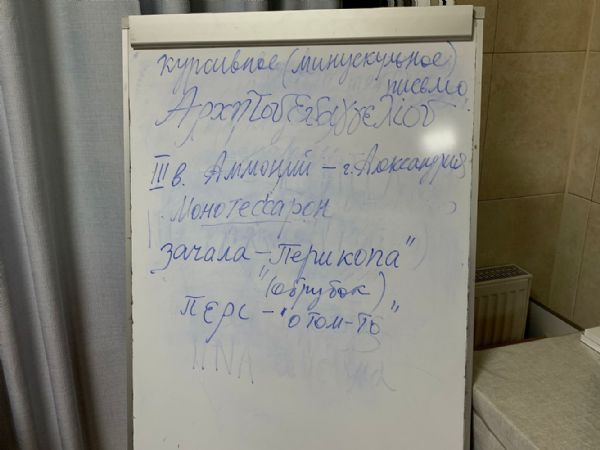 курсивное (минускульное)
письмо
III в. Аммоний – г. Александрия
Монотессарон
зачала – "Перикопа"
(обрубок)
перс – "о том-то"